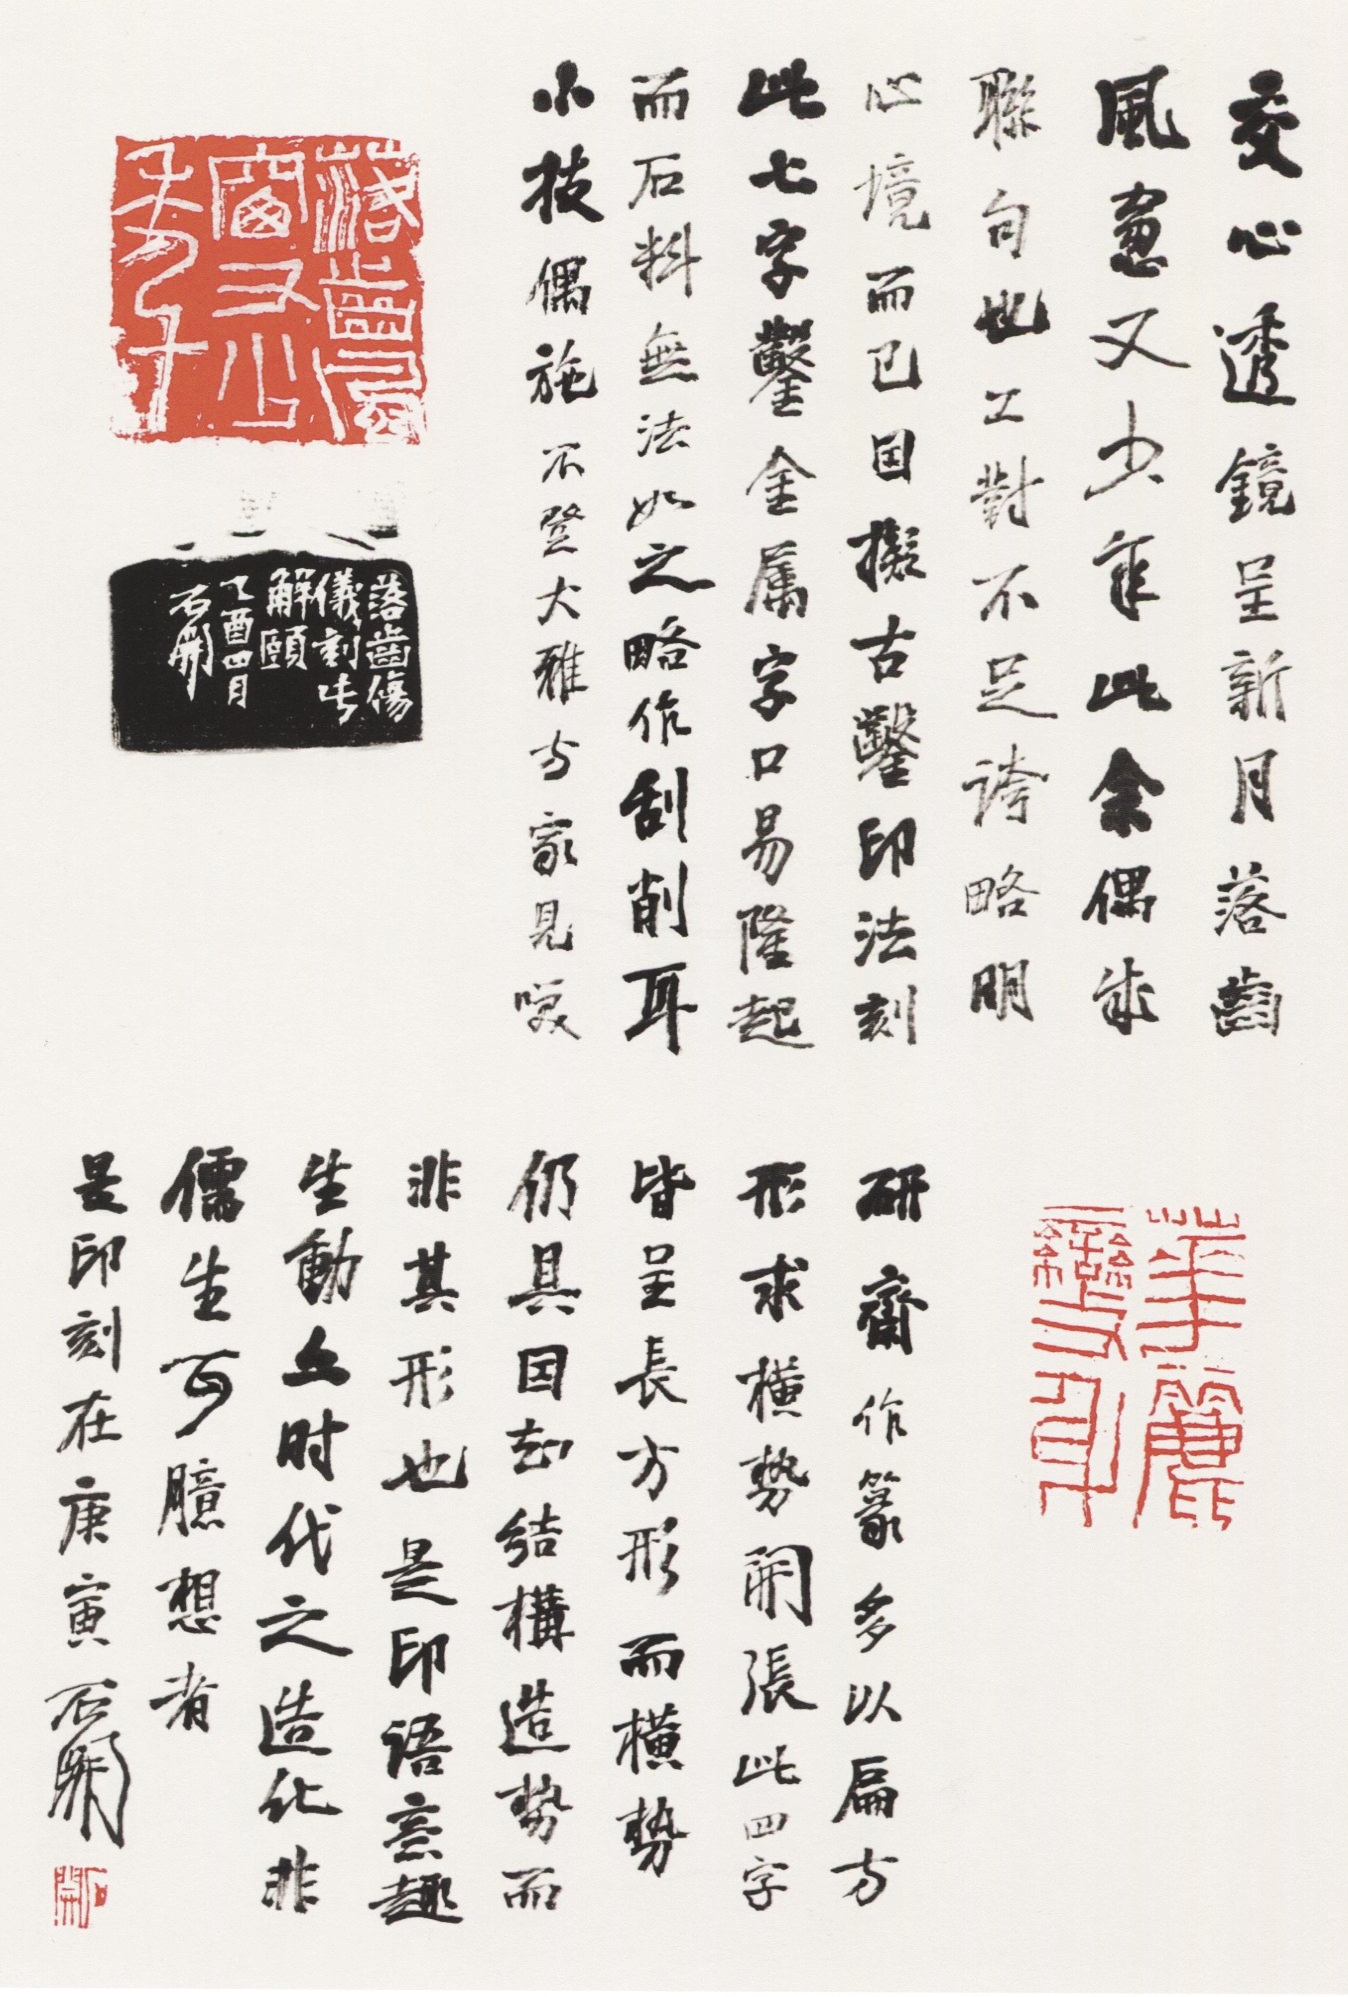 交心透鏡呈新月落齒
風窻又少年此余偶成
聯句也工對不足誇略明
心境而已因擬古鑿印法刻
此七字鑿金属字口易隆起
而石料無法如之略作刮削耳
小技偶施不登大雅方家見笑
落齒風
窗又少
年
落齒傷
儀刻此
解頤
乙酉四月
石開
華麗
變身
研齋作篆多以扁方
形求横勢開張此四字
皆呈長方形而横势
仍具因知結構造势而
非其形也是印语意趣
生動丘时代之造化非
儒生可臆想者
是印刻在庚寅石開
石開